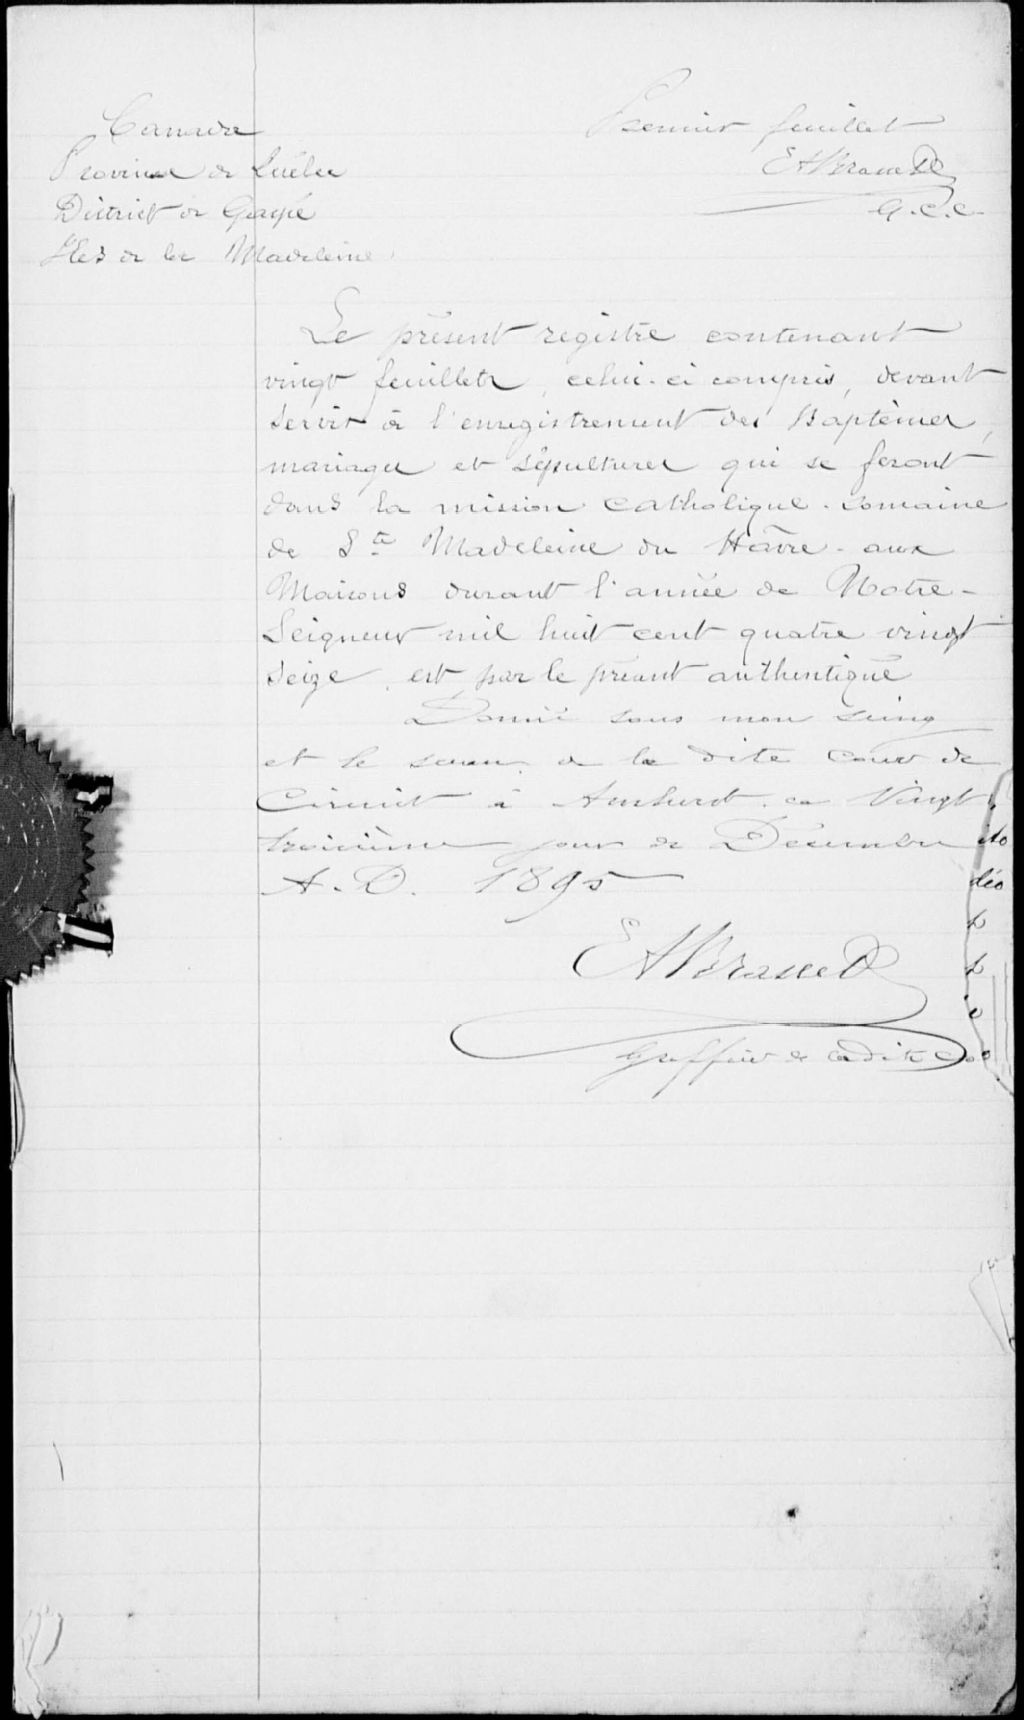 Canada
Province de Québec
District de Gaspé
Iles de la Madeleine
Premier feuillet
E A Brasset
G. C. C.
Le présent registre contenant
vingt feuillets, celui-ci compris, devant
servir à l'enregistrement des Baptêmes,
mariages et sépultures qui se feront
dans la mission catholique-romaine
de Ste Madeleine du Hâvre-aux
Maisons durant l'année de Notre-
Seigneur mil huit cent quatre vingt
seize, est par le présent authentiqué
Donné sous mon seing
et le sceau de la dite Cour de
Circuit à Amherst ce Vingt
troisième jour de Décembre
A. D. 1895
E A Brasset
Greffier de la dite